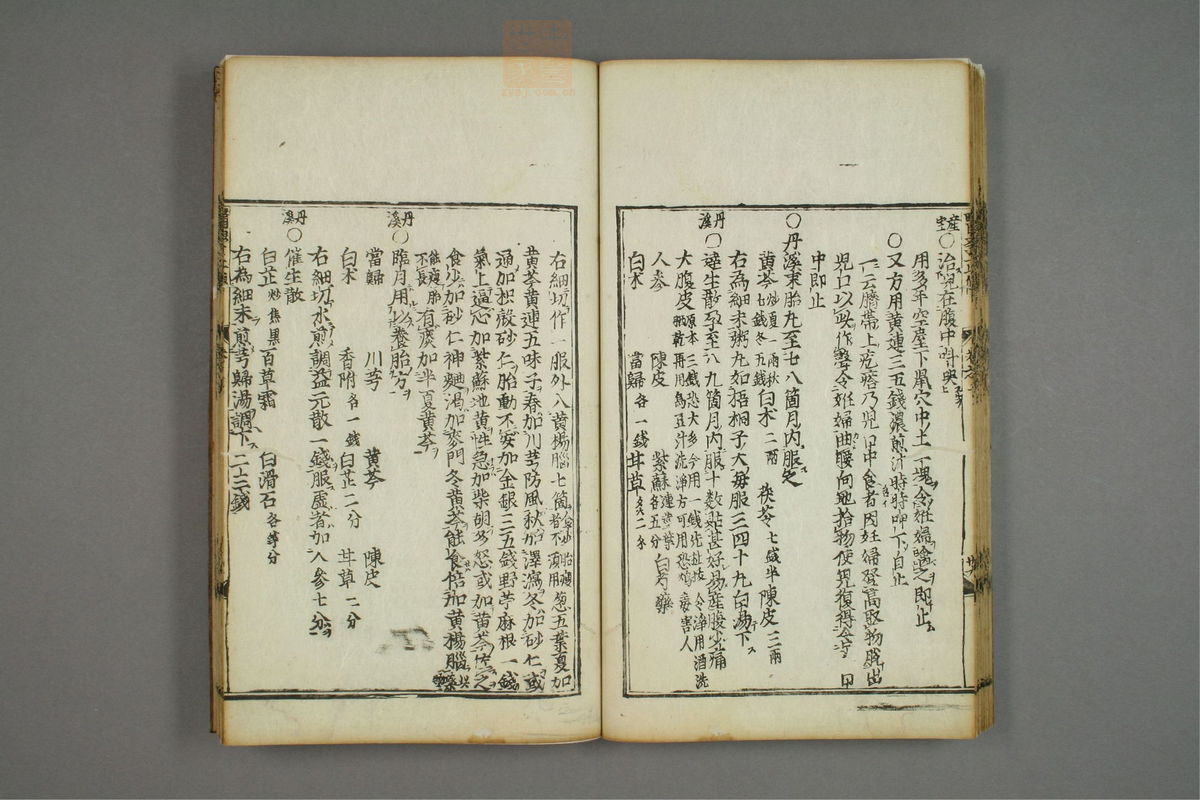 産宝
○治兒在腹中啼哭
用多年空屋下鼠穴中土一塊令姙婦噙之即止
○又方用黄連三五錢濃煎汁時時呷下自止
一云臍帶上疙瘩乃兒口中食者因妊婦登高取物脱出
兒口以此作聲令姙婦曲腰向地拾物使兒復得入口
中即止
○丹溪束胎丸至七八箇月内服之
黄芩炒夏一兩秋七錢冬五錢 白朮二兩 茯苓七錢半 陳皮三兩
右為細末粥丸如梧桐子大每服三四十丸白湯下
丹溪
○達生散孕至八九箇月内服十数貼甚好易産腹少痛
大腹皮
人参 陳皮 紫蘇連莖葉各五分 白芍藥
白朮 當歸各一錢 甘草炙二錢
右細切作一服外入黄楊腦七箇 葱五葉夏加
黄芩黄連五味子春加川芎防風秋加澤瀉冬加砂仁或
通加枳殻砂仁胎動不安加金銀三五錢野苧麻根一錢
氣上逼心加紫蘇地黄性急加柴胡多怒或加黄芩佐之
食少加砂仁神麯渇加麥門冬黄芩能食倍加黄楊腦
有痰加半夏黄芩
丹溪
○臨月用以養胎方
當歸 川芎 黄芩 陳皮
白朮 香附各一錢 白芷二分 甘草二分
右細切水煎調益元散一錢服虚者加人參七分
丹溪
○催生散
白芷炒焦黑 百草霜 白滑石各等分
右為細末煎芎歸湯調下二三錢